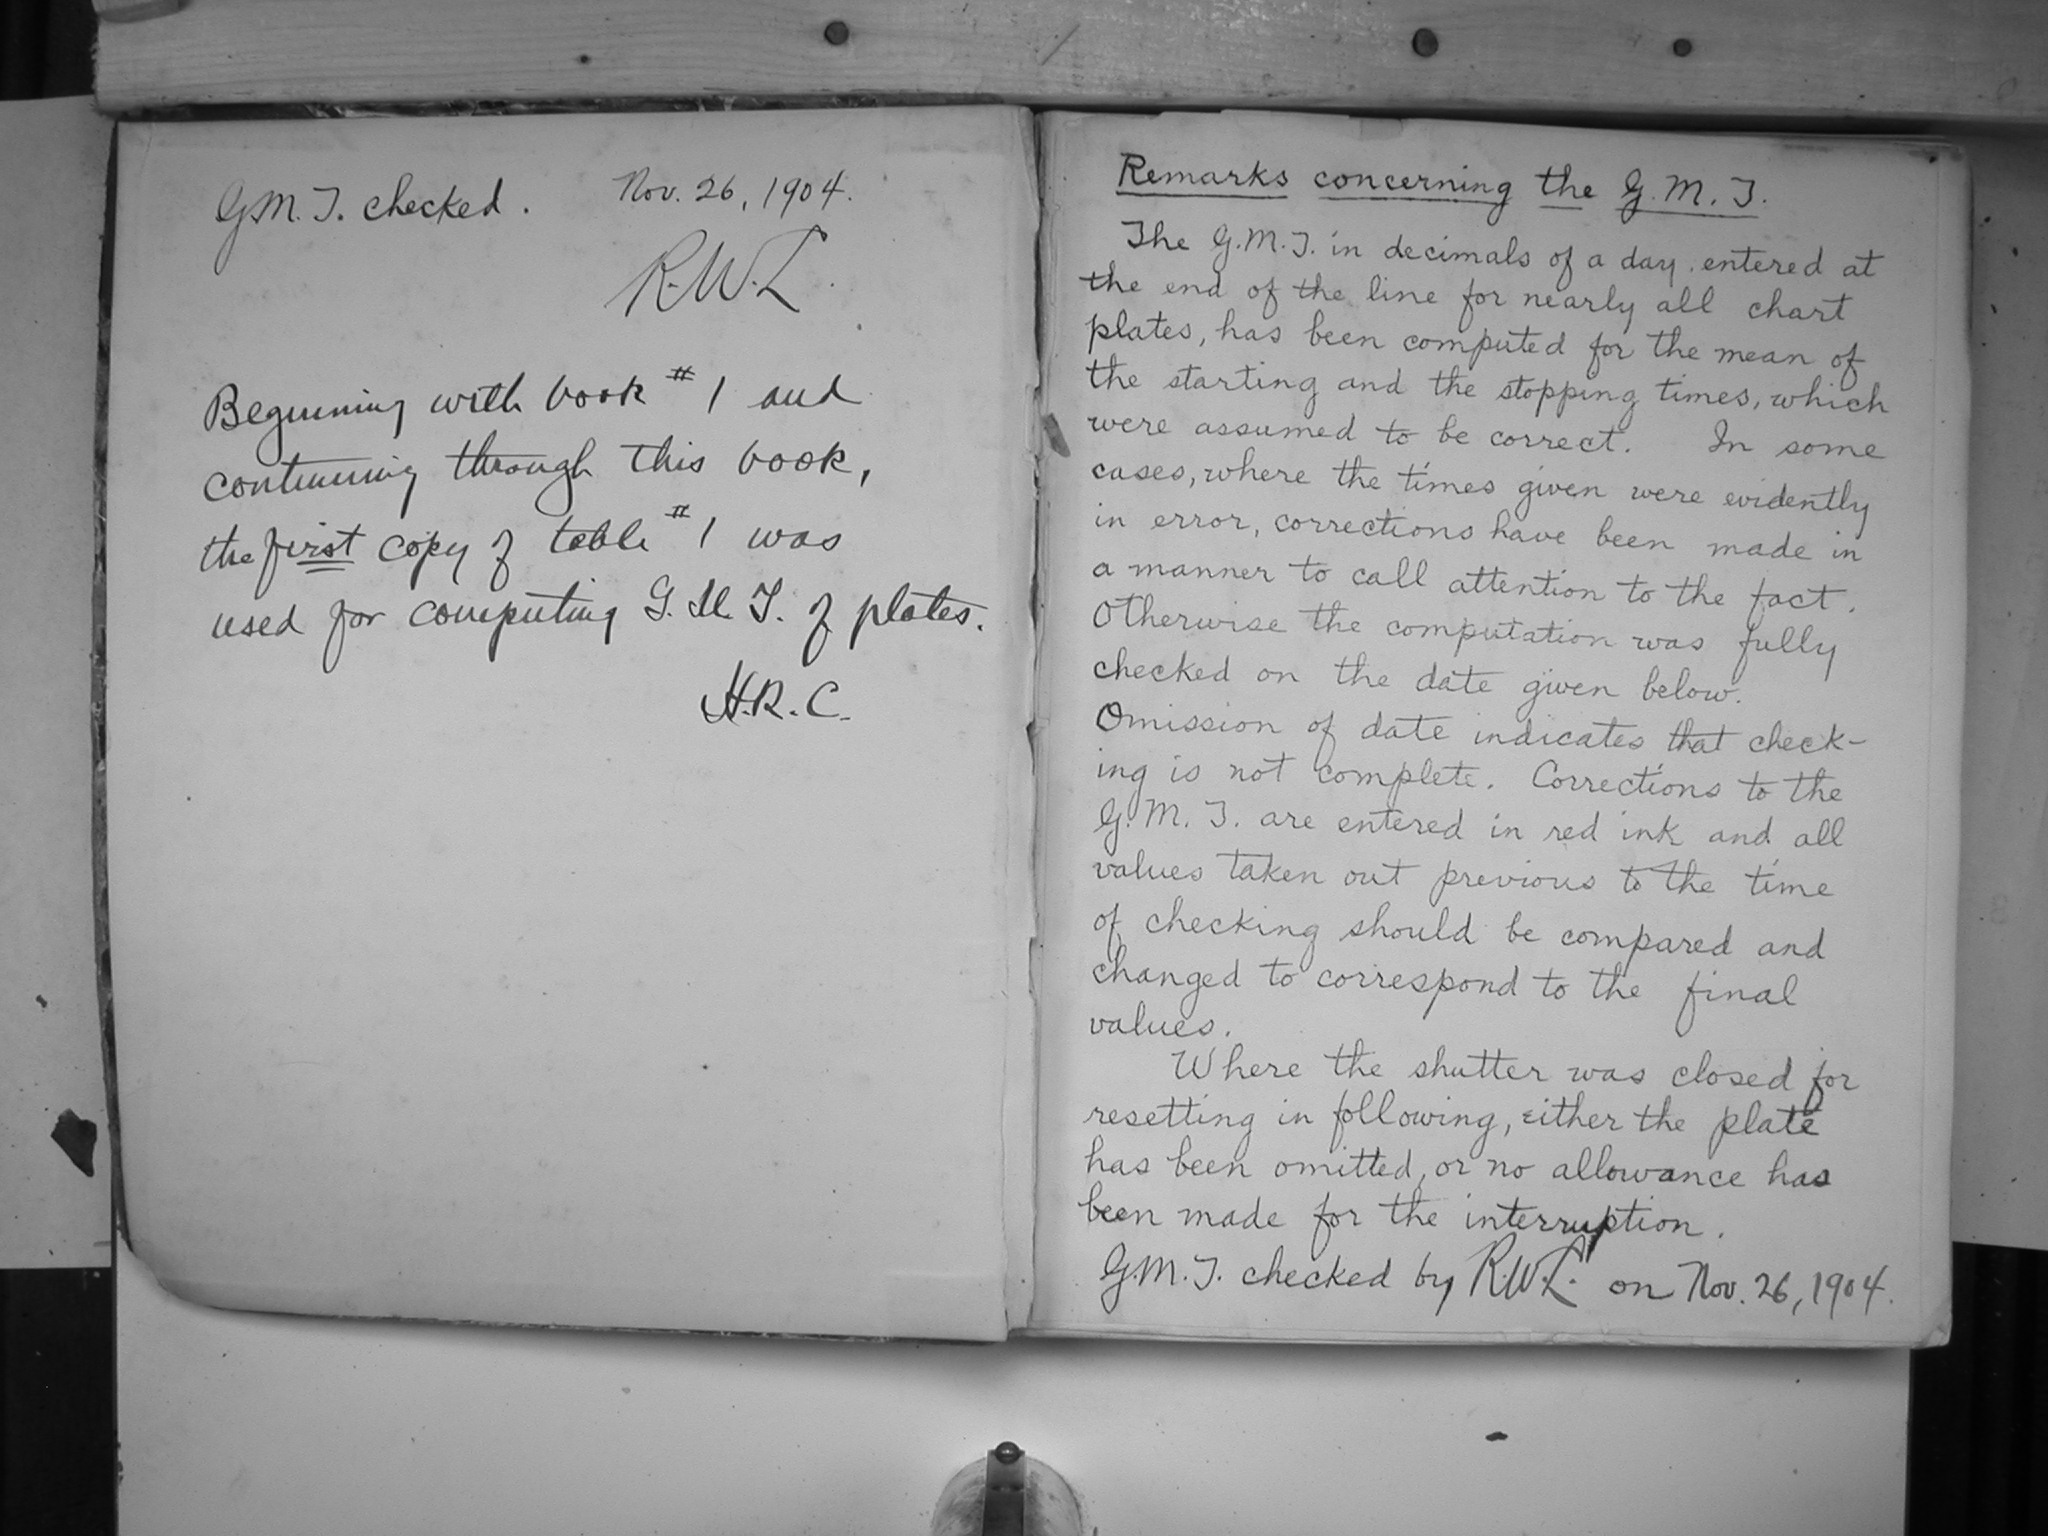 G.M.T. checked. Nov. 26, 1904.
R.W.L.
Beginning with book #1 and
continuing through this book,
the first copy of table #1 was
used for computing G.M.T. of plates.
H.R.C.
Remarks concerning the G.M.T.
The G.M.T. in decimals of a day entered at
the end of the line for nearly all chart
plates, has been computed for the mean of
the starting and the stopping times, which
were assumed to be correct. In some
cases, where the times given were evidently
in error, corrections have been made in
a manner to call attention to the fact.
Otherwise the computation was fully
checked on the date given below.
Omission of date indicates that check-
ing is not complete. Corrections to the
G.M.T. are entered in red ink and all
values taken out previous to the time
of checking should be compared and
changed to correspond to the final
values.
Where the shutter was closed for
resetting in following, either the plate
has been omitted, or no allowance has
been made for the interruption.
G.M.T. checked by R.W.L. on Nov. 26, 1904.